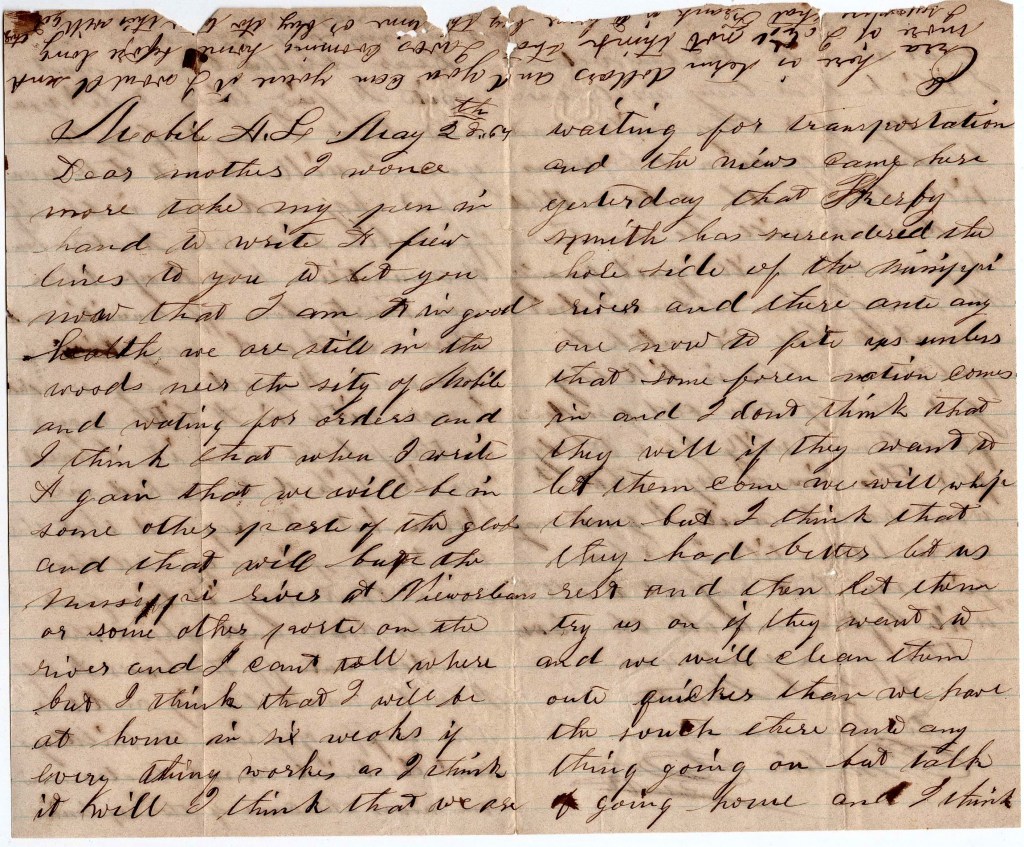 Mobile A.L. May 28th 65
Dear mother I wonce
more take my pen in
hand to write A fiew
lines to you to let you
now that I am A in good
health we are still in the
woods neer the sity of Mobile
and wating for orders and
I think that when I write
A gain that we will be in
some other parte of the glob
and that will be the
Missippi river at Nieworleans
or some other parte on the
river and I cant tell where
but I think that I will be
at home in six weaks if
every thing workes as I think
it will I think that we are
waiting for transportation
and the niews came here
yesterday that Kerby
smith has surrendered the
hole side of the missippi
river and there ante any
one now to fite us unless
that some foren nation comes
in and I dont think that
they will if they want to
let them come we will whip
them but I think that
they had better let us
rest and then let them
try us on if they want to
and we will clean them
oute quicker than we have
the south there ante any
thing going on but talk
of going home and I think
here is dollars and you can give it I would send
more if I not think that I was coming home before long